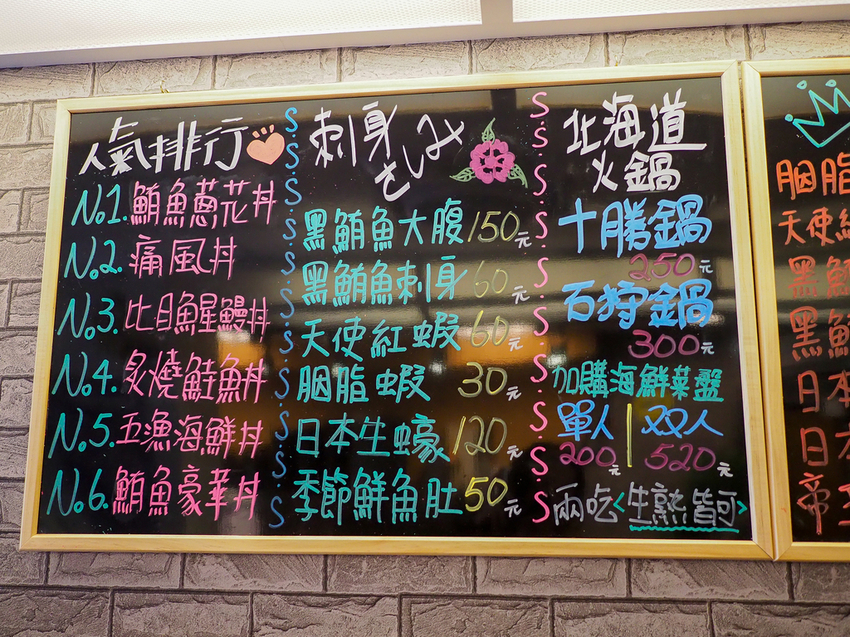 人氣排行
No.1.鮪魚蔥花丼
No.2.痛風丼
No.3.比目魚星鰻丼
No.4.炙燒鮭魚丼
No.5.五漁海鮮丼
No.6.鮪魚豪華丼
刺身
さしみ
黑鮪魚大腹150元
黑鮪魚刺身60元
天使紅蝦60元
胭脂蝦30元
日本生蠔120元
季節鮮魚肚50元
北海道
火鍋
十勝鍋
250元
石狩鍋
300元
加購海鮮菜盤
單人|双人
200元|520元
兩吃<生熟皆可>
胭脂
天使紅
黑鮪
黑鮪
日本
日
帝王